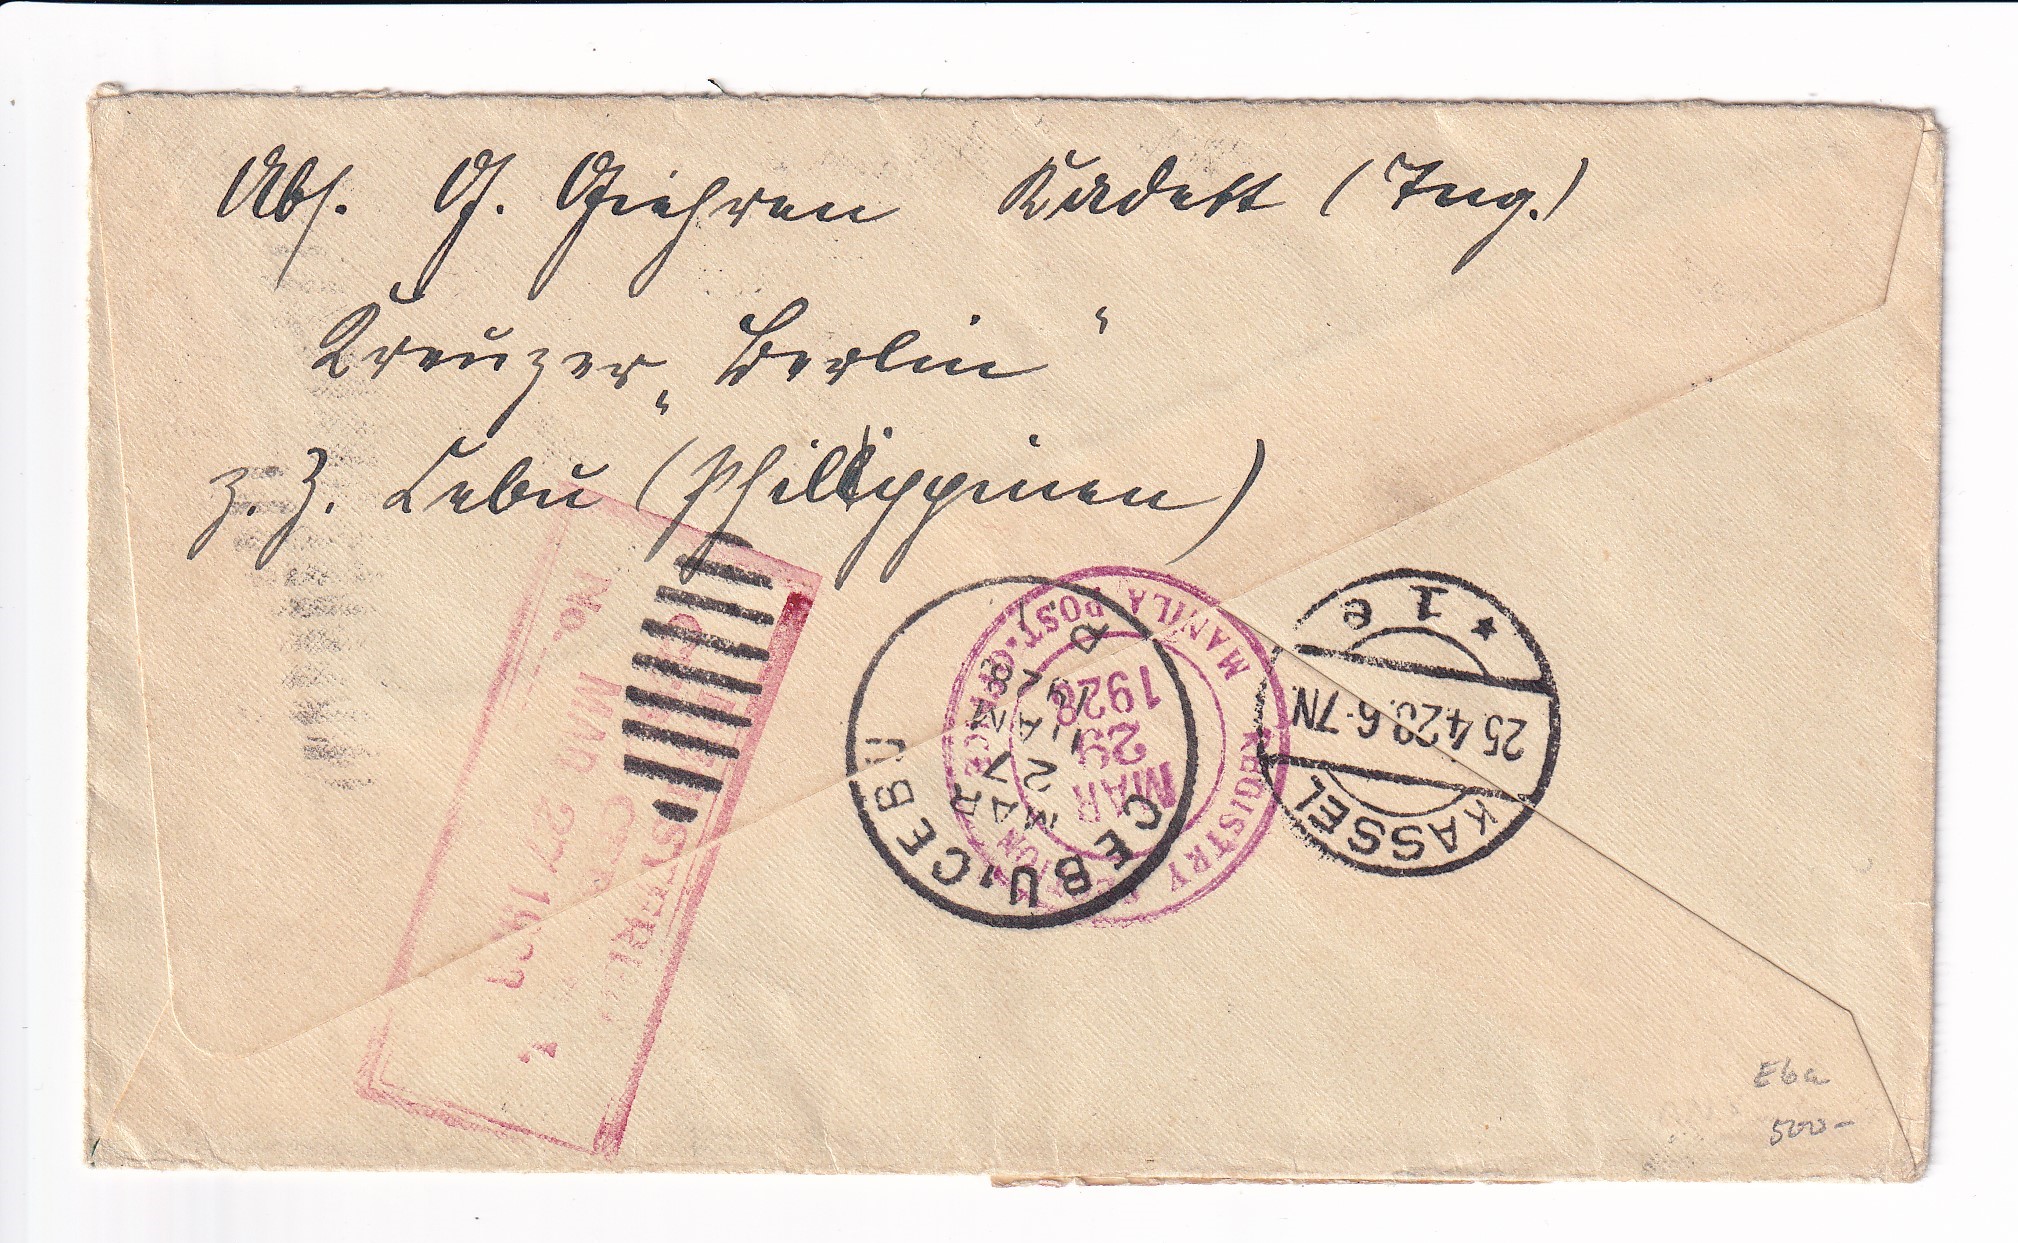 Abs. G. Giehren Kadett (Ing.)
Kreuzer „Berlin“
z. Z. Cebu (Philippinen)
REGISTERED
No.
MAR 27 19
CEBU, CEBU
MAR 27
11 AM
1928
MANILA, POST-OFFICE
REGISTRY
MAR
29
1928
KASSEL
25.4.28.6-7N
* 1 e
Eba
500-